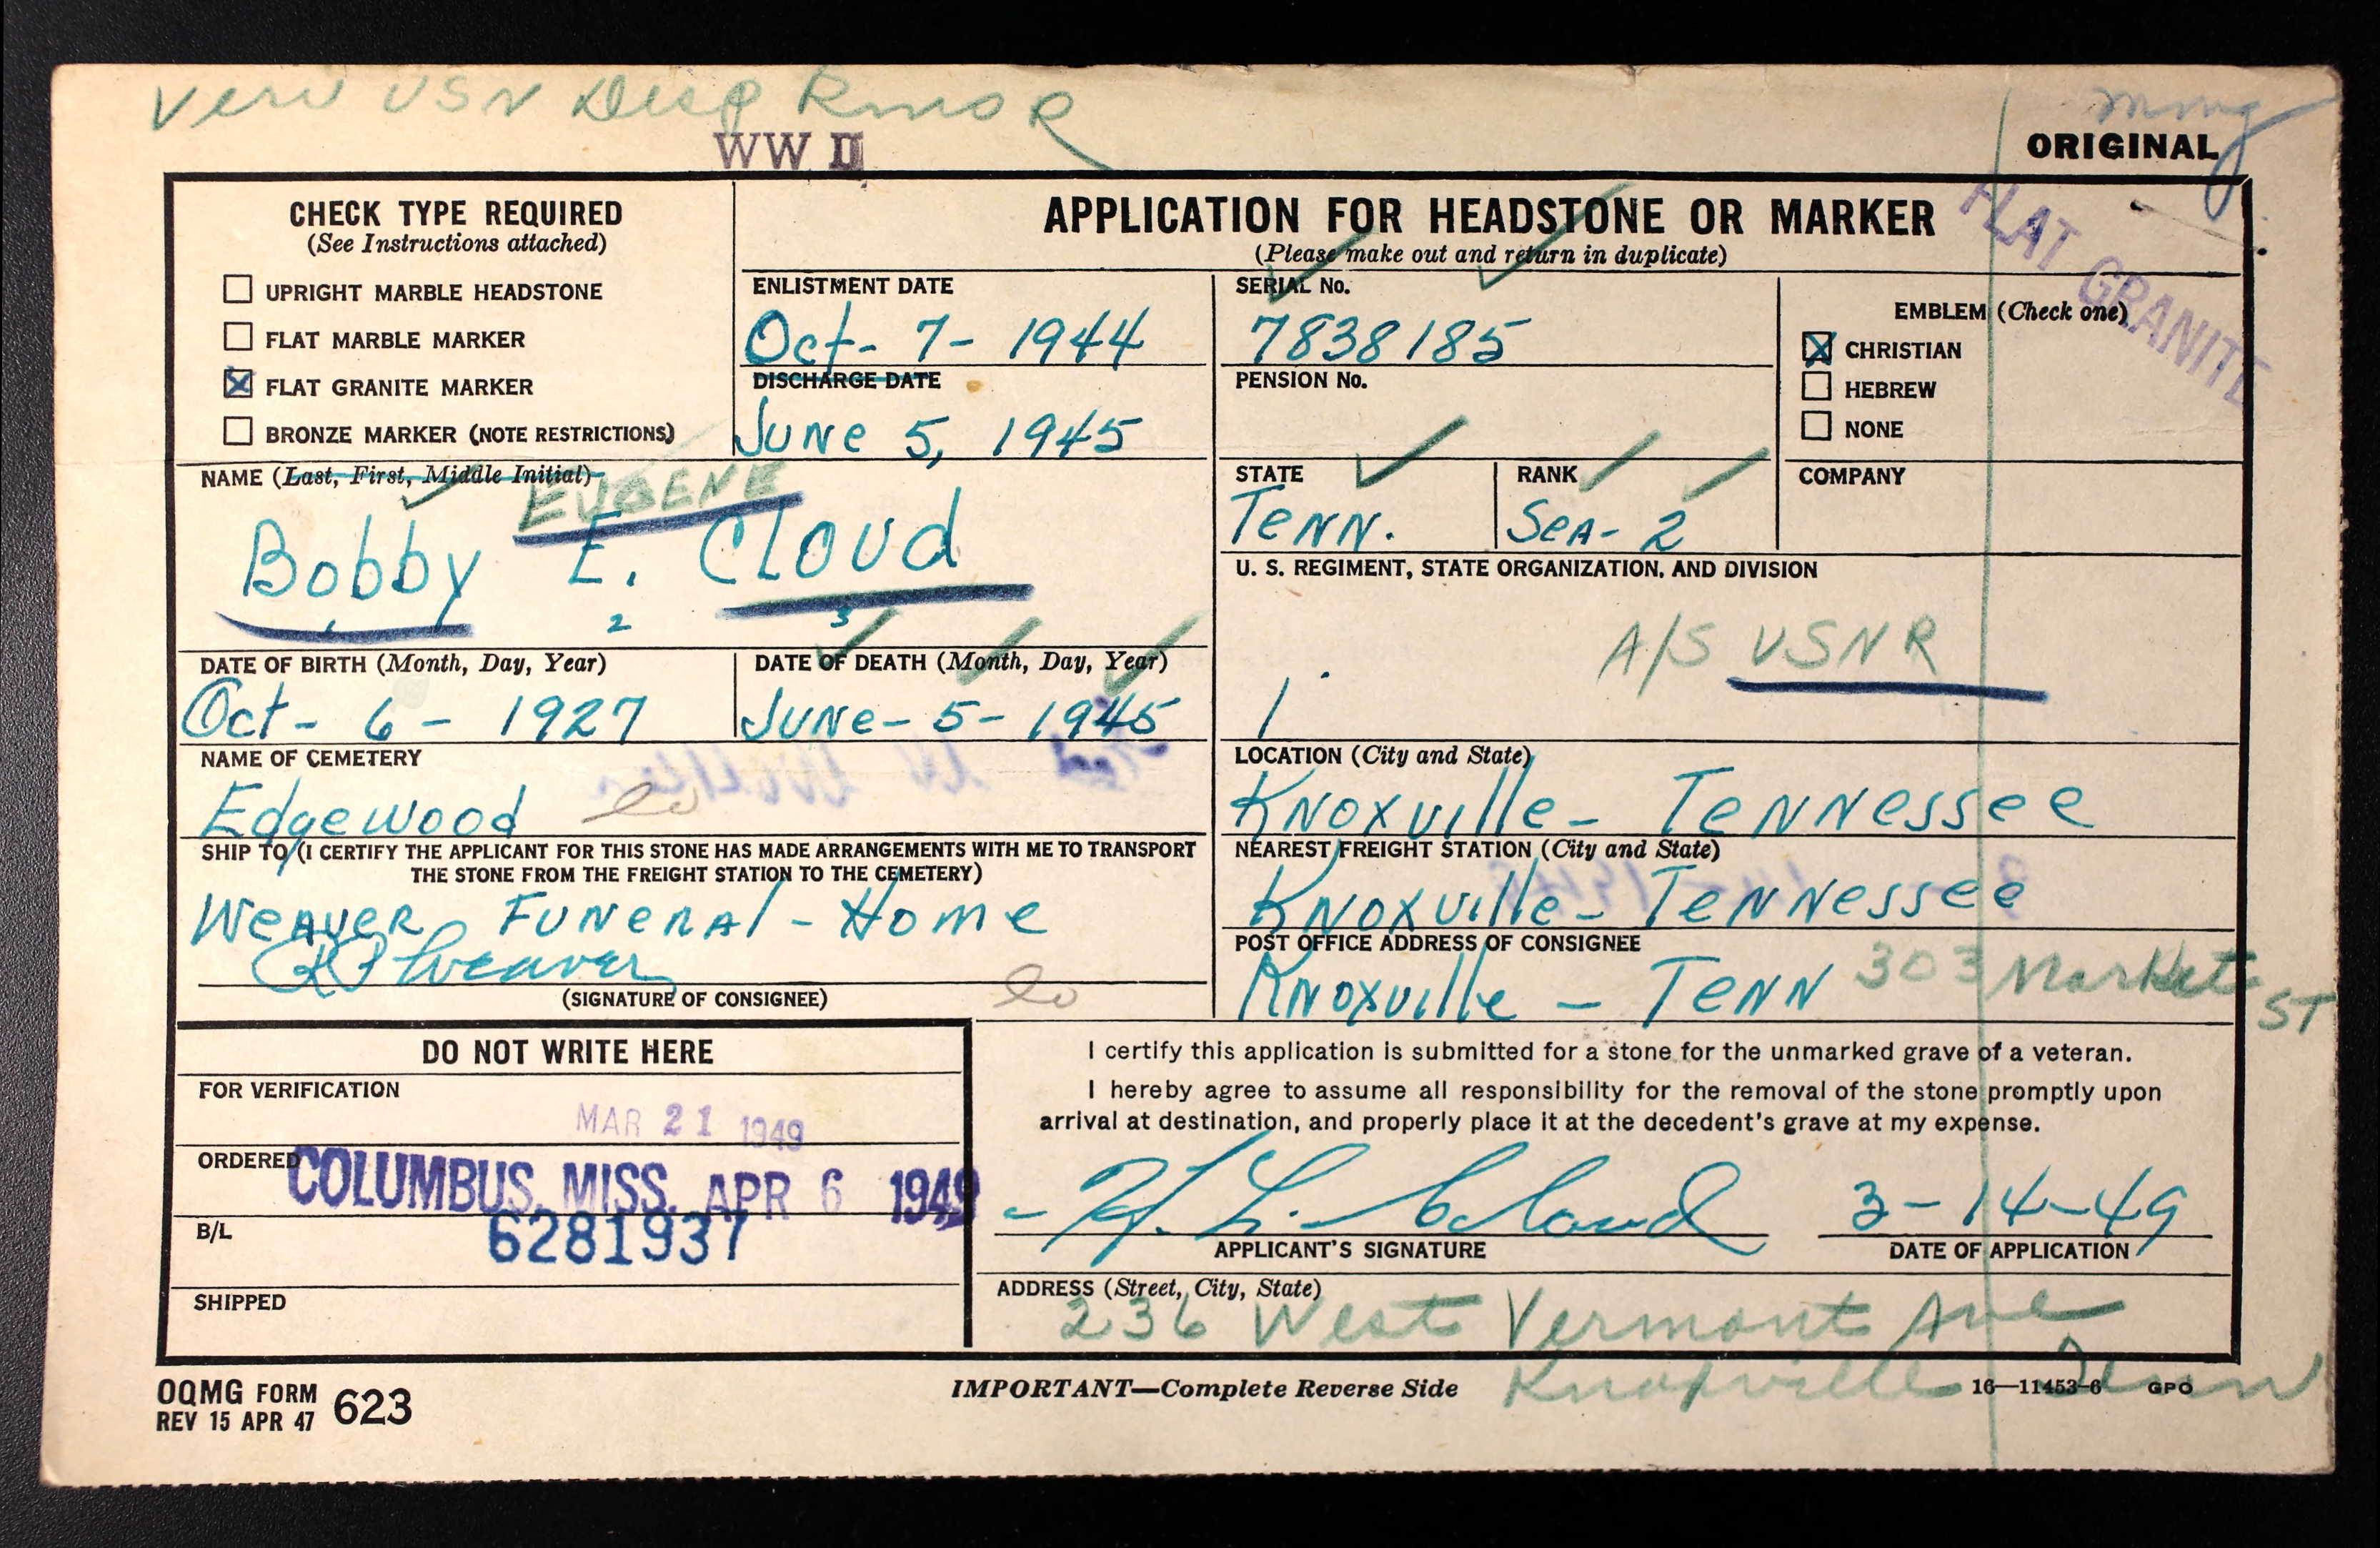 Veri USN Desp
WW II
mmg
ORIGINAL
FLAT GRANITE
CHECK TYPE REQUIRED
(See Instructions attached)
UPRIGHT MARBLE HEADSTONE
FLAT MARBLE MARKER
X FLAT GRANITE MARKER
BRONZE MARKER (NOTE RESTRICTIONS)
APPLICATION FOR HEADSTONE OR MARKER
(Please make out and return in duplicate)
ENLISTMENT DATE
Oct- 7- 1944
DISCHARGE DATE
June 5, 1945
SERIAL No.
7838185
PENSION No.
EMBLEM (Check one)
X CHRISTIAN
HEBREW
NONE
NAME (Last, First, Middle Initial)
EUGENE
Bobby E. Cloud
2 3
STATE
Tenn.
RANK
Sea- 2
COMPANY
U. S. REGIMENT, STATE ORGANIZATION, AND DIVISION
A/S USNR
DATE OF BIRTH (Month, Day, Year)
Oct- 6- 1927
DATE OF DEATH (Month, Day, Year)
June- 5- 1945
NAME OF CEMETERY
Edgewood
LOCATION (City and State)
Knoxville- Tennessee
SHIP TO (I CERTIFY THE APPLICANT FOR THIS STONE HAS MADE ARRANGEMENTS WITH ME TO TRANSPORT
THE STONE FROM THE FREIGHT STATION TO THE CEMETERY)
Weaver Funeral-Home
Weaver
(SIGNATURE OF CONSIGNEE)
NEAREST FREIGHT STATION (City and State)
Knoxville- Tennessee
POST OFFICE ADDRESS OF CONSIGNEE
Knoxville - Tenn 303 Market ST
DO NOT WRITE HERE
FOR VERIFICATION
MAR 21 1949
ORDERED
COLUMBUS, MISS. APR 6 1949
B/L
6281937
SHIPPED
I certify this application is submitted for a stone for the unmarked grave of a veteran.
I hereby agree to assume all responsibility for the removal of the stone promptly upon
arrival at destination, and properly place it at the decedent's grave at my expense.
H. L. Cloud 3-14-49
APPLICANT'S SIGNATURE
DATE OF APPLICATION
ADDRESS (Street, City, State)
236 West Vermont Ave
Knoxville Tenn
OQMG FORM 623
REV 15 APR 47
IMPORTANT—Complete Reverse Side
16—11453-6 GPO